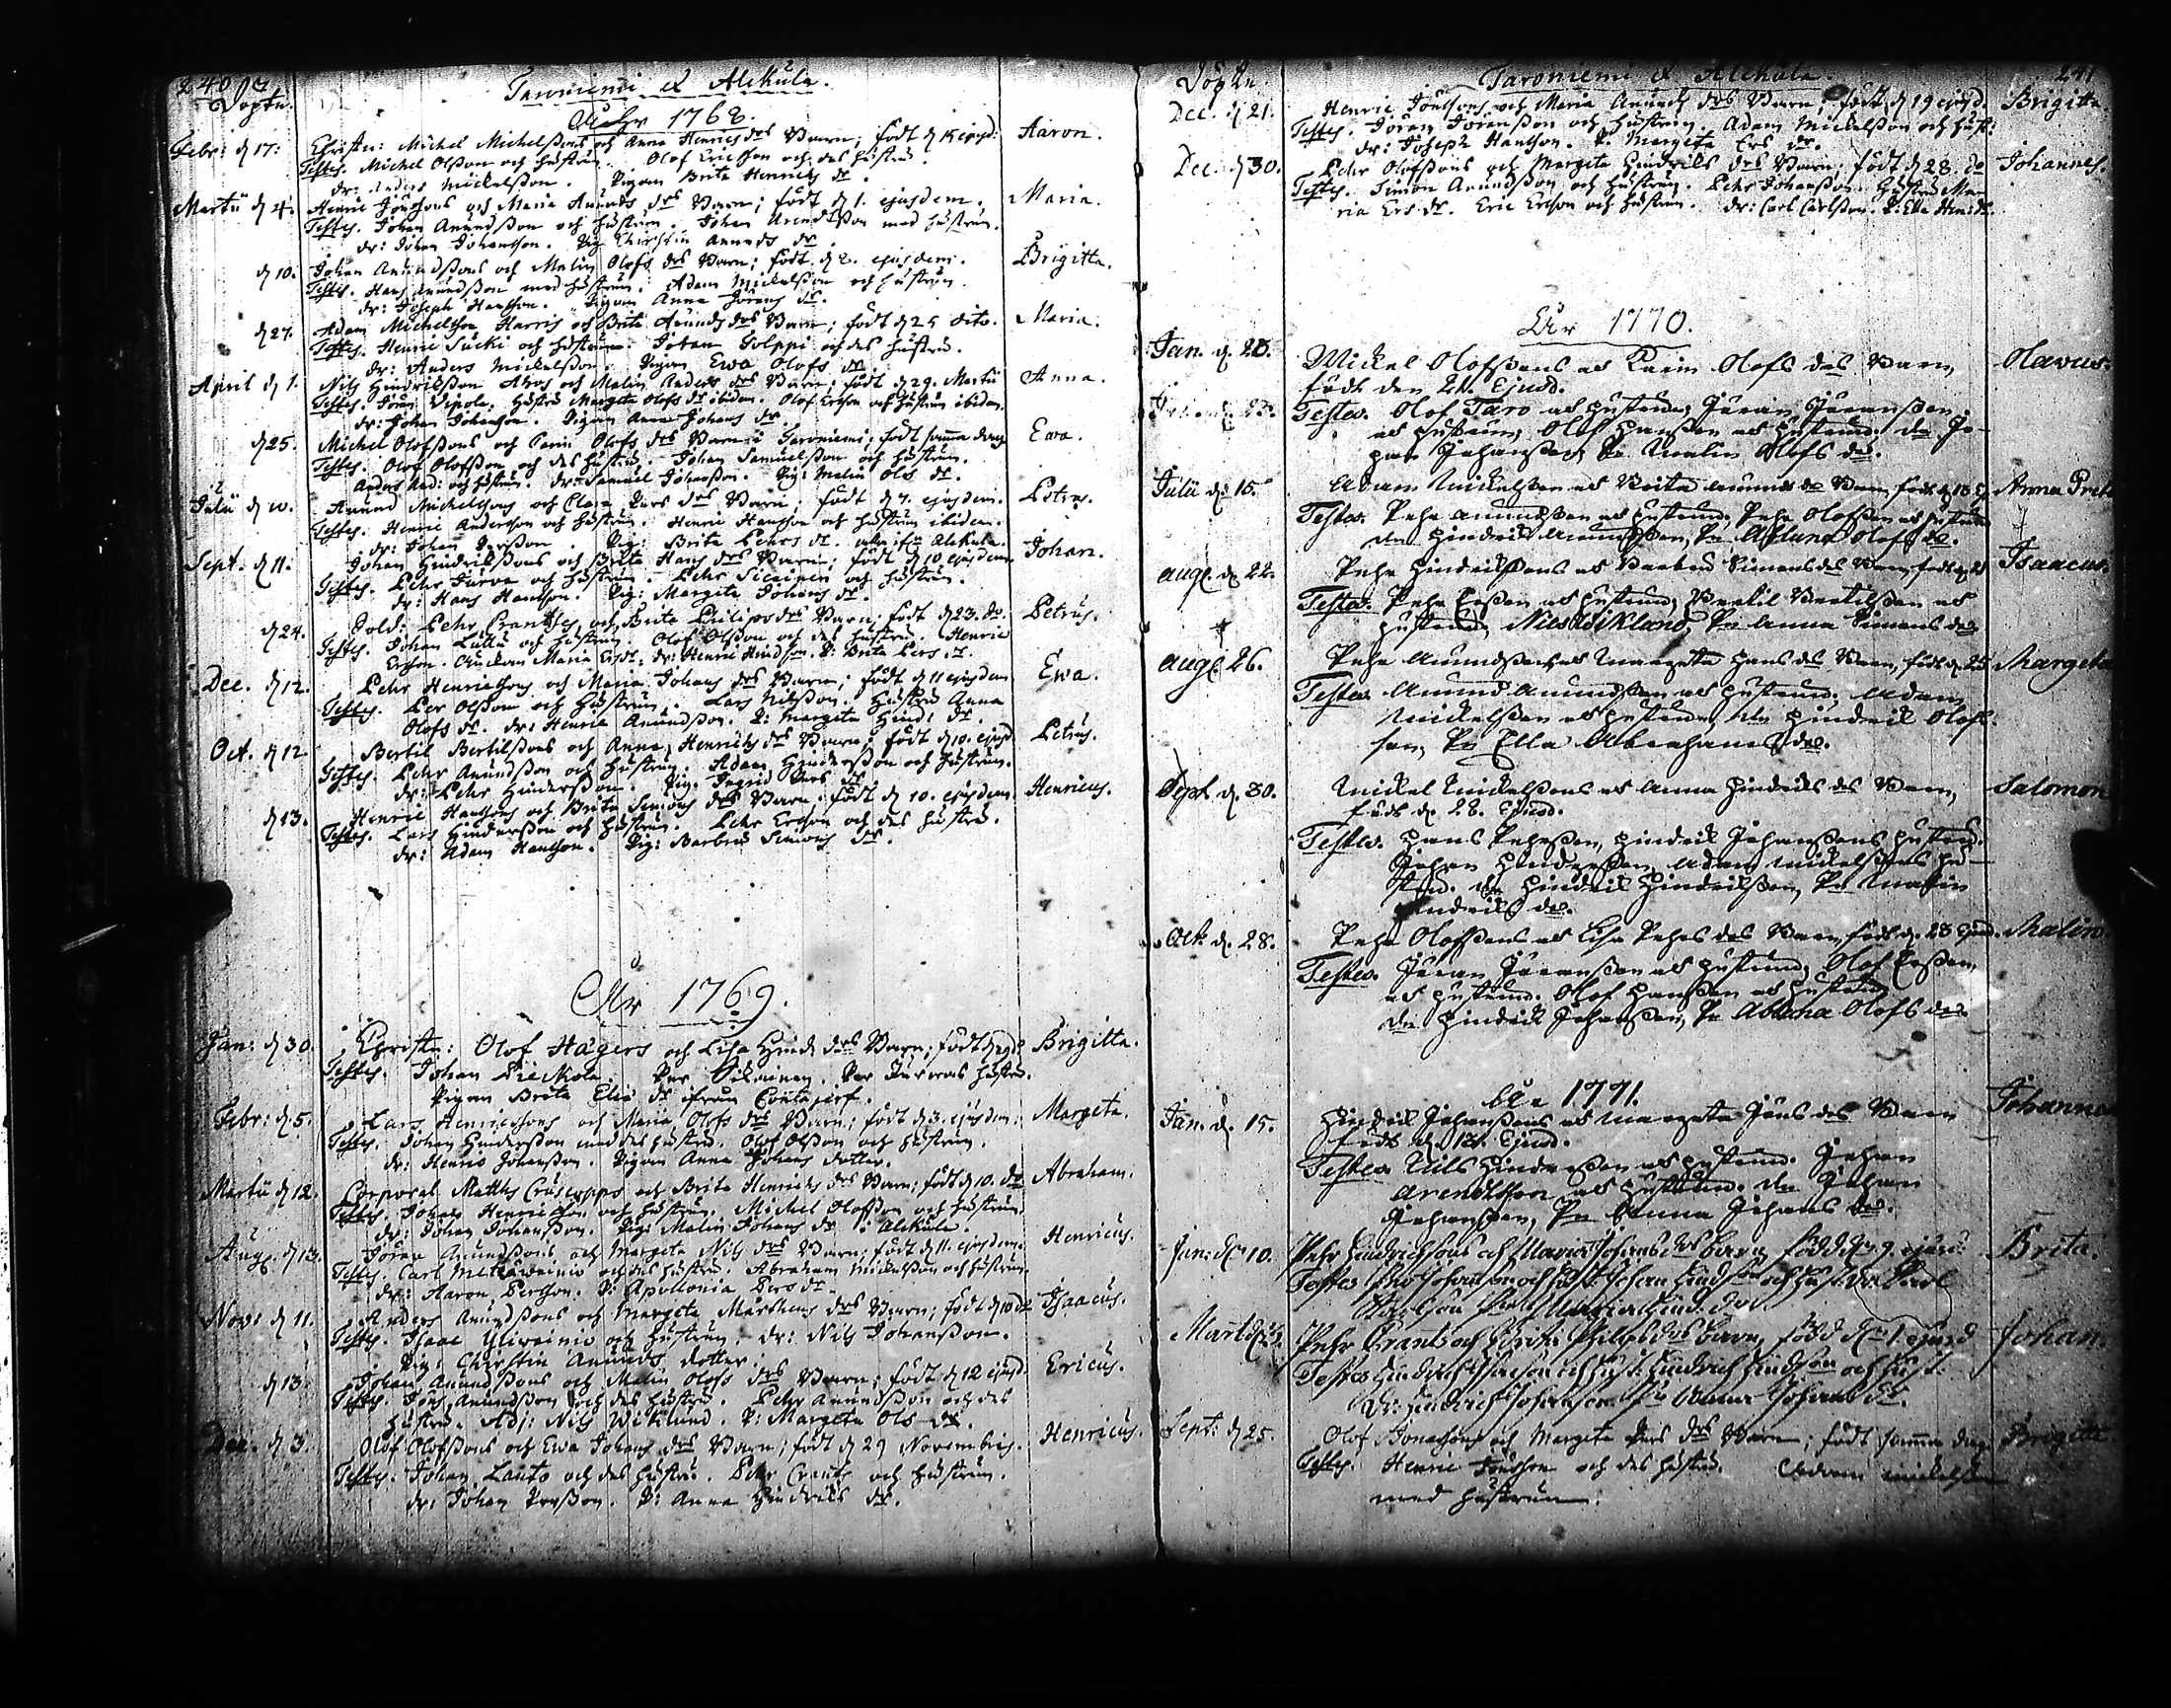 240
Döpte.
Taroniemi & Alckula.
Åhr 1768.
Febr: d 17. Christn: Michel Michelssons och Anna Henrics drs Barn; födt d 15 ejusd: Aaron.
Testes. Michel Olsson och hustrun. Olof Ericsson och des hustru.
dr: Anders Mickelsson. Pigan Brita Henrichs dr.
Martii d 4. Henric Jönssons och Maria Amunds drs Barn; födt d 1. ejusdem. Maria.
Testes. Johan Amundsson och hustrun. Johan Arendtsson med hustrun.
dr: Johan Johansson. Pig. Christin Amunds dr.
d 10. Johan Amundssons och Malin Olofs drs Barn; födt d 2. ejusdem. Brigitta.
Testes. Hans Amundsson med hustrun. Adam Mickelsson och hustrun.
dr: Joseph Hansson. Pigan Anna Jörens dr.
d 27. Adam Michelsson Harris och Brita Amunds drs Barn; födt d 25 dito. Maria.
Testes. Henric Sucki och hustrun. Johan Tolppi och des hustru.
dr: Anders Mickelsson. Pigan Ewa Olofs dr
April d 1. Nils Hindricsson Ahos och Malin Anders drs Barn; födt d 29. Martii Anna.
Testes. Jöran Vipola. Hustru Margeta Olofs dr ibidem. Olof Ersson och hustrun ibidem.
dr: Johan Johansson. Pigan Anna Johans dr.
d 25. Michel Olofssons och Carin Olofs drs Barn i Taroniemi; födt samma dag Ewa.
Testes. Olof Olofsson och des hustru. Johan Samuelsson och hustrun.
Anders And: och hustrun. dr: Samuel Johansson. Pig: Malin Ols dr.
Julii d 10. Amund Michelssons och Clara Pers drs Barn; födt d 7. ejusdem. Petrus.
Testes. Henric Andersson och hustrun. Henric Hansson och hustrun ibidem.
dr: Johan Persson. Pig: Brita Pehrs dr. Alckula.
Sept. d 11. Johan Hindricssons och Brita Hans drs Barn; födt d 10 ejusdem. Johan.
Testes. Pehr Jurva och hustrun. Pehr Sicainen och hustrun.
dr: Hans Hansson. Pig: Margeta Johans dr.
d 24. Sold: Pehr Crantz's och Brita Philips drs Barn; födt d 23. do. Petrus.
Testes. Johan Lullu och hustrun. Olof Olsson och des hustru. Henric
Ersson. Maria Ers dr. dr: Henric Hindsson. P: Brita Pers dr.
Dec. d 12. Pehr Henricssons och Maria Johans drs Barn; födt d 11 ejusdem Ewa.
Testes. Per Olsson och hustrun. Lars Nilsson. Hustru Anna
Olofs dr. dr: Henric Amundsson. P: Margeta Hind: dr.
Oct. d 12 Bertil Bertilssons och Anna Henrichs drs Barn; födt d 10. ejusd Petrus.
Testes. Pehr Amundsson och hustrun. Adam Hindersson och hustrun.
dr: Pehr Hindersson. Pig. Ingrid Pers dr
d 13. Henric Hanssons och Brita Simons drs Barn; födt d 10. ejusdem Henricus.
Testes. Lars Hindersson och hustrun. Pehr Ersson och des hustru.
dr: Adam Hansson. Pig: Barbru Simons dr.
År 1769.
Jan: d 30. Christn: Olof Hägers och Lisa Hind: drs Barn; födt Brigitta.
Testes. Johan Pieckola. Per Sikainen. Per Jurvas hustru.
Pigan Brita Elis dr ifrån Contajerf.
Febr: d 5. Lars Henricssons och Maria Olofs drs Barn; födt d 3. ejusdem: Margeta.
Testes. Johan Hindersson med des hustru. Olof Olsson och hustrun.
dr: Henric Johansson. Pigan Anna Johans dotter.
Martii d 12. Corporal Matths och Brita Henrichs drs Barn; födt d 10. do Abraham.
Testes. Johan Henricsson och hustrun. Michel Olofsson och hustrun
dr: Johan Johansson. Pig: Malin Johans dr i Alckula.
Aug. d 13. Jöran Amundssons och Margeta Nils drs Barn; födt d 11. ejusdem. Henricus.
Testes. Carl Mettäwainio och des hustru. Abraham Mickelsson och hustrun.
dr: Aaron Persson. P: Apollonia Pers dr.
Nov: d 11. Anders Amundssons och Margeta Mårthens drs Barn; födt d 10 do Isaacus.
Testes. Isaac Yliwainio och hustrun. dr: Nils Johansson.
Pig: Christin Amunds dotter.
d 13. Johan Amundssons och Malin Olofs drs Barn; födt d 12 ejusd. Ericus.
Testes. Jöns Amundsson och des hustru. Pehr Amundsson och des
hustru. Adj: Nils Wiklund. P: Margeta Ols dr.
Dec. d 3. Olof Olofssons och Ewa Johans drs Barn; födt d 29 Novembris. Henricus.
Testes. Johan Lauto och des hustru. Pehr Crants och hustrun.
dr: Johan Persson. P: Anna Hindriks dr.
241
Döpte.
Taroniemi & Alckula.
Dec. d 21. Henric Jönssons och Maria Amunds drs Barn; födt d 19 ejusd. Brigitta
Testes. Jöran Jöransson och hustrun. Adam Mickelsson och hust:
dr: Joseph Hansson. P. Margeta Ers dr.
Dec. d 30. Pehr Olofssons och Margeta Hindriks drs Barn; födt d 28. do Johannes.
Testes. Simon Amundsson och hustrun. Pehr Johansson. Hustru Ma-
ria Ers dr. Eric Ericson och hustrun. dr: Carl Carlsson. P: Ella Hen: dr.
År 1770.
Jan. d. 28. Mickel Olofssons och Karin Olofs des Barn, Olavus.
född den 24. Ejusd.
Testes. Olof Taro och hustrun, Jöran Jöransson
och hustrun, Olof Hansson och hustrun. dr Jo-
han Johansson, Pn Malin Olofs dr.
Julii d. 15. Adam Mickelsson och Brita Amunds dr Barn, född d 13 Anna Greta
Testes. Pehr Amundsson och hustrun, Pehr Olofsson och hustrun
dn Hindrik Amundsson, Pn Olofs dr.
aug. d. 22. Pehr Hindrikssons och Barbru Simons des Barn, född d 21 Isaacus.
Testes. Pehr Ersson och hustrun, Bertil Bertilsson och
hustrun, Niels Wiklund, Pn Anna Simons dr
aug. 26. Pehr Amundssons och Margeta Hans des Barn, född d. 25 Margeta
Testes. Amund Amundsson och hustrun. Adam
Mickelsson och hustrun, dn Hindrik Olofs-
son, Pn Ella Abrahams dr.
Sept. d. 30. Mickel Mickelssons och Anna Hindriks des Barn, Salomon
född d. 28. Ejusd.
Testes. Hans Pehrsson, Hindrik Johanssons hustru.
Johan Hindersson, Adam Mickelssons hu-
stru. dn Hindrik Hindriksson, Pn Malin
Hindriks dr.
Oct. d. 28. Pehr Olofssons och Lisa Pehrs des Barn, född d. 28 Ejusd. Malin.
Testes. Jöran Jöransson och hustrun, Olof Ersson,
och hustrun. Olof Hansson och hustrun
dn Hindrik Johansson, Pn Olofs dr
År 1771.
Jan. d. 15. Hindrik Johanssons och Margeta Jöns des Barn Johannes
född d. 13. Ejusd.
Testes Nils Hindersson och hustrun. Johan
Arendtsson och hustrun. dn Johan
Johansson, Pn Anna Johans dr.
Jan: d. 10. Pehr Hindrichsons och Maria Johans drs barn, född d. 9. ejusd: Brita.
Testes Johansson och hust: Johan Hindsson och hustru Carl
Carlsson Maria Hind: dr.
Mart. Pehr Crants och Brita Philips drs barn, född d. 1. ejusd Johan.
Testes Hindrich Isacson och hust: Hindrich Hindsson och hust:
Dr: Hindrich Johansson Pn Anna Johans dr.
Sept: d 25. Olof Jonassons och Margeta Pers drs Barn; födt samma dag. Brigitta
Testes. Henric Jönsson och des hustru. Adam Mickelsson
med hustrun.